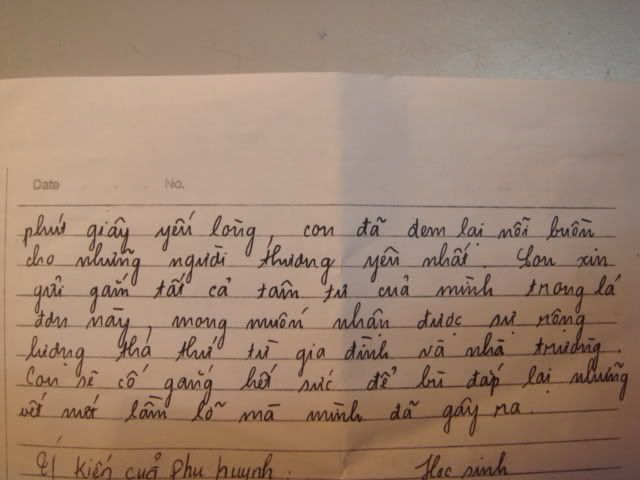 Date No.
phút giây yếu lòng, con đã đem lại nỗi buồn
cho những người thương yêu nhất. Con xin
gửi gắm tất cả tâm tư của mình trong lá
đơn này, mong muốn nhận được sự rộng
lượng tha thứ từ gia đình và nhà trường.
Con sẽ cố gắng hết sức để bù đắp lại những
vết nứt lầm lỗ mà mình đã gây ra.
Ý kiến của phụ huynh. Học sinh